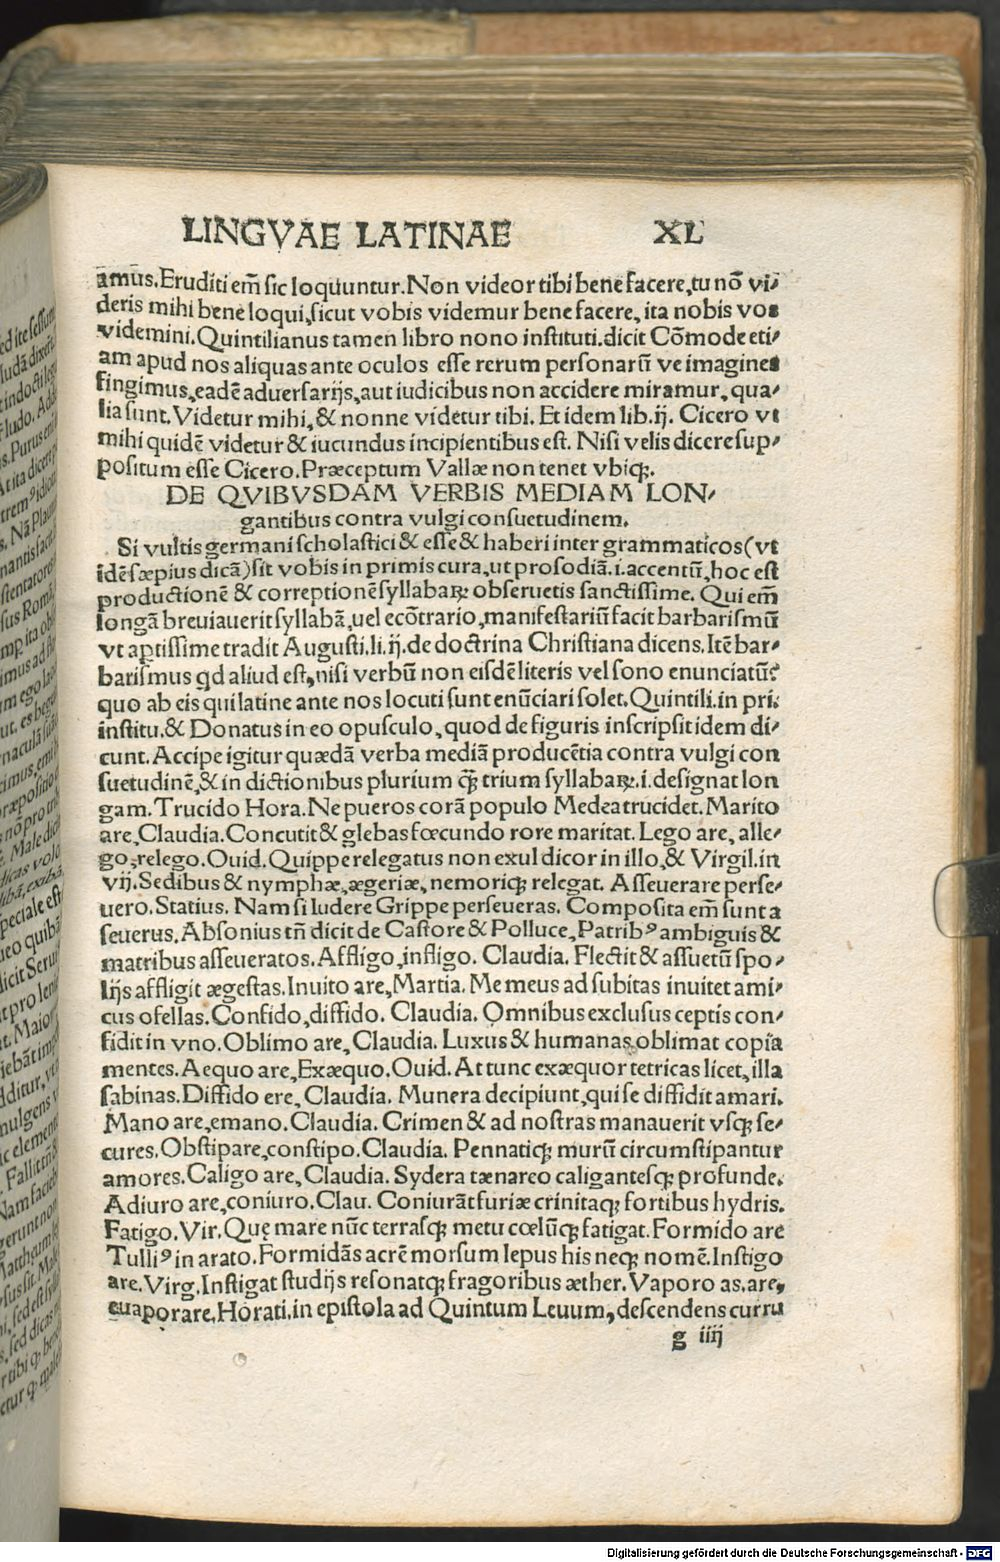 LINGVAE LATINAE XL
amus. Eruditi em̃ sic loquuntur. Non videor tibi bene facere, tu nõ vi⸗
deris mihi bene loqui, sicut vobis videmur bene facere, ita nobis vos
videmini. Quintilianus tamen libro nono instituti. dicit Cõmode eti⸗
am apud nos aliquas ante oculos esse rerum personarũ ve imagines
fingimus, eadẽ aduersarijs, aut iudicibus non accidere miramur, qua⸗
lia sunt. Videtur mihi, & nonne videtur tibi. Et idem lib. ij. Cicero vt
mihi quidẽ videtur & iucundus incipientibus est. Nisi velis dicere sup⸗
positum esse Cicero. Præceptum Vallæ non tenet vbiqꝫ.
DE QVIBVSDAM VERBIS MEDIAM LON⸗
gantibus contra vulgi consuetudinem.
Si vultis germani scholastici & esse & haberi inter grammaticos (vt
idẽ sæpius dicã) sit vobis in primis cura, ut prosodiã. i. accentũ, hoc est
productionẽ & correptionẽ syllabaꝝ obseruetis sanctissime. Qui em̃
longã breuiauerit syllabã, uel ecõtrario, manifestariũ facit barbarismũ
vt aptissime tradit Augusti. li. ij. de doctrina Christiana dicens. Itẽ bar⸗
barismus qd aliud est, nisi verbũ non eisdẽ literis vel sono enunciatũ?
quo ab eis qui latine ante nos locuti sunt enũciari solet. Quintili. in pri.
institu. & Donatus in eo opusculo, quod de figuris inscripsit idem di⸗
cunt. Accipe igitur quædã verba mediã producẽtia contra vulgi con
suetudinẽ, & in dictionibus plurium qꝫ̃ trium syllabaꝝ. i. designat lon
gam. Trucido Hora. Ne pueros corã populo Medea trucidet. Marito
are, Claudia. Concutit & glebas fœcundo rore maritat. Lego are, alle⸗
go, relego. Ouid. Quippe relegatus non exul dicor in illo, & Virgil. in
vij. Sedibus & nymphæ, ægeriæ, nemoriqꝫ relegat. Asseuerare perse⸗
uero. Statius. Nam si ludere Grippe perseueras. Composita em̃ sunt a
seuerus. Absonius tñ dicit de Castore & Polluce, Patribꝰ ambiguis &
matribus asseueratos. Affligo, infligo. Claudia. Flectit & assuetũ spo⸗
lijs affligit ægestas. Inuito are, Martia. Me meus ad subitas inuitet ami⸗
cus ofellas. Confido, diffido. Claudia. Omnibus exclusus ceptis con⸗
fidit in vno. Oblimo are, Claudia. Luxus & humanas oblimat copia
mentes. Aequo are, Exæquo. Ouid. At tunc exæquor tetricas licet, illa
sabinas. Diffido ere, Claudia. Munera decipiunt, qui se diffidit amari.
Mano are, emano. Claudia. Crimen & ad nostras manauerit vsqꝫ se⸗
cures. Obstipare, constipo. Claudia. Pennatiqꝫ murũ circumstipantur
amores. Caligo are, Claudia. Sydera tænareo caligantesqꝫ profunde.
Adiuro are, coniuro. Clau. Coniurãt furiæ crinitaqꝫ fortibus hydris.
Fatigo. Vir. Quę mare nũc terrasqꝫ metu cœlũqꝫ fatigat. Formido are
Tulliꝰ in arato. Formidãs acrẽ morsum lepus his neqꝫ nomẽ. Instigo
are. Virg. Instigat studijs resonatqꝫ fragoribus æther. Vaporo as, are,
euaporare, Horati. in epistola ad Quintum Leuum, descendens curru
g iiij
Digitalisierung gefördert durch die Deutsche Forschungsgemeinschaft - DFG